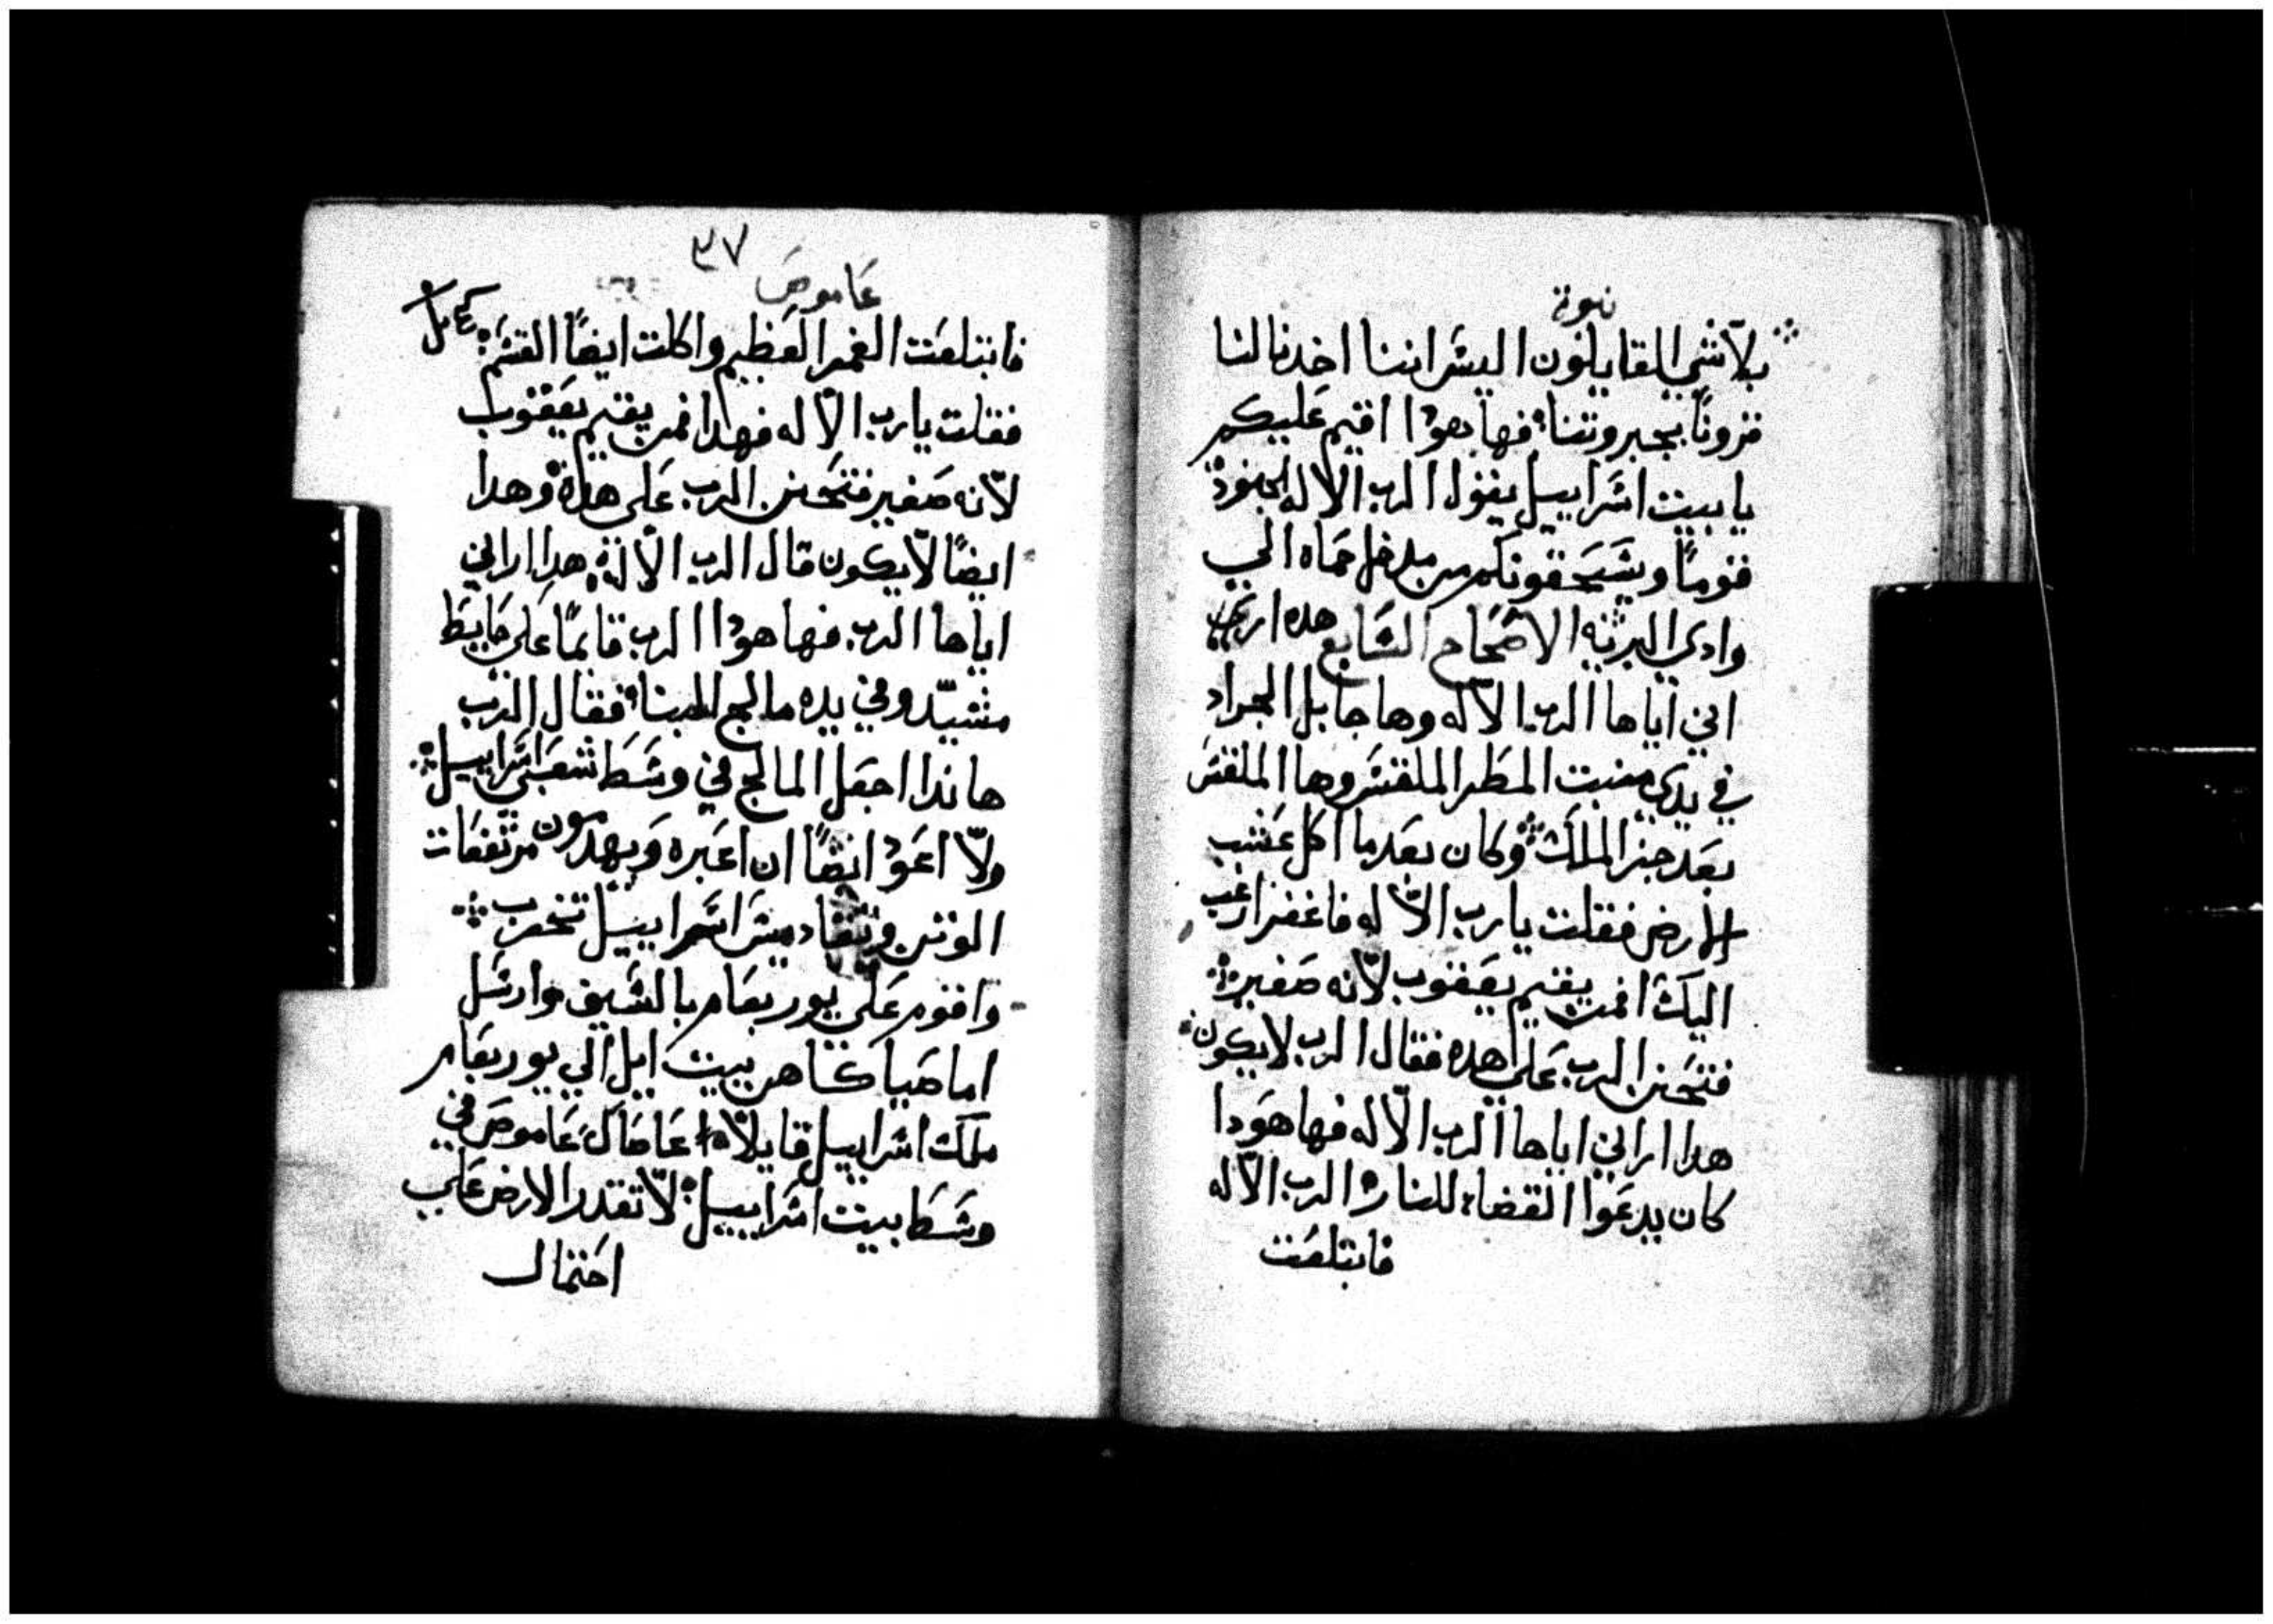 نبوة
بلاشي القايلون اليس اننا اخدنا لنا
قرونًا بجبروتنا فها هودا اقيم عليكم
يا بيت اسراييل يقول الرب الاله الجنود
قومًا ويسحقونكم من مدخل حماه الي
وادي البريه الاصحاح السابع هده اراني
اني اياها الرب الاله وها جابل الجراد
في يدي منبت المطر الملقس وها الملقس
بعد جز الملك وكان بعدما اكل عشب
الارض فقلت يارب الاله فاغفر ارغب
اليك افمن يقيم يعقوب لانه صغير
فتحنن الرب علي هده فقال الرب لا يكون
هدا اراني اياها الرب الاله فها هودا
كان يدعوا القضاء للنار الرب الاله
فابتلعت
٣٧
عاموص
فابتلعت الغمر العظيم واكلت ايضًا القسم
فقلت يارب الاله فهدا فمن يقيم يعقوب
لانه صغير فتحنن الرب علي هده وهدا
ايضًا لا يكون قال الرب الاله هدا اراني
اياها الرب فها هودا الرب قايمًا علي حايط
مشيّد وفي يده مالج البنا فقال الرب
هاندا اجعل المالج في وسط شعبي اسراييل
ولا اعود ايضًا ان اعبره ويهدمون مرتفعات
الوتن وتقاديس اسراييل تخرب
واقوم علي يوربعام بالسيف وارسل
اماصيا كاهن بيت ايل الي يوربعام
ملك اسراييل قايلاً عاصاك عاموص في
وسط بيت اسراييل لا تقدر الارض علي
احتمال